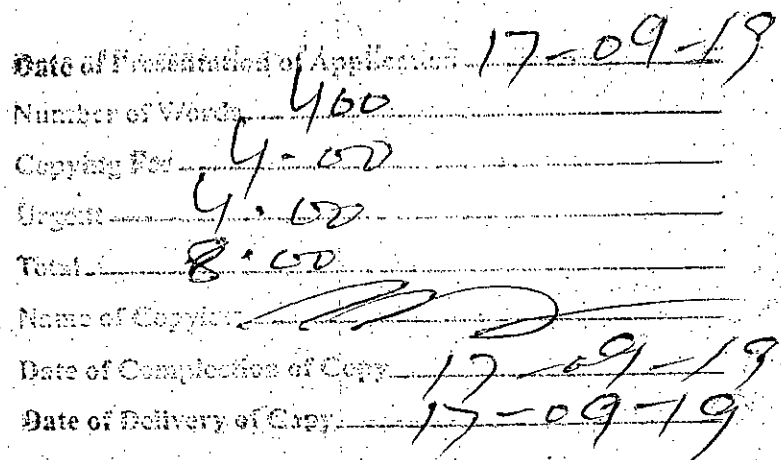 Date of Presentation of Application 17-09-19
Number of Words 400
Copying Fee 4-00
Urgent 4.00
Total 8.00
Name of Copyiest
Date of Complection of Copy 17-09-19
Date of Delivery of Copy 17-09-19